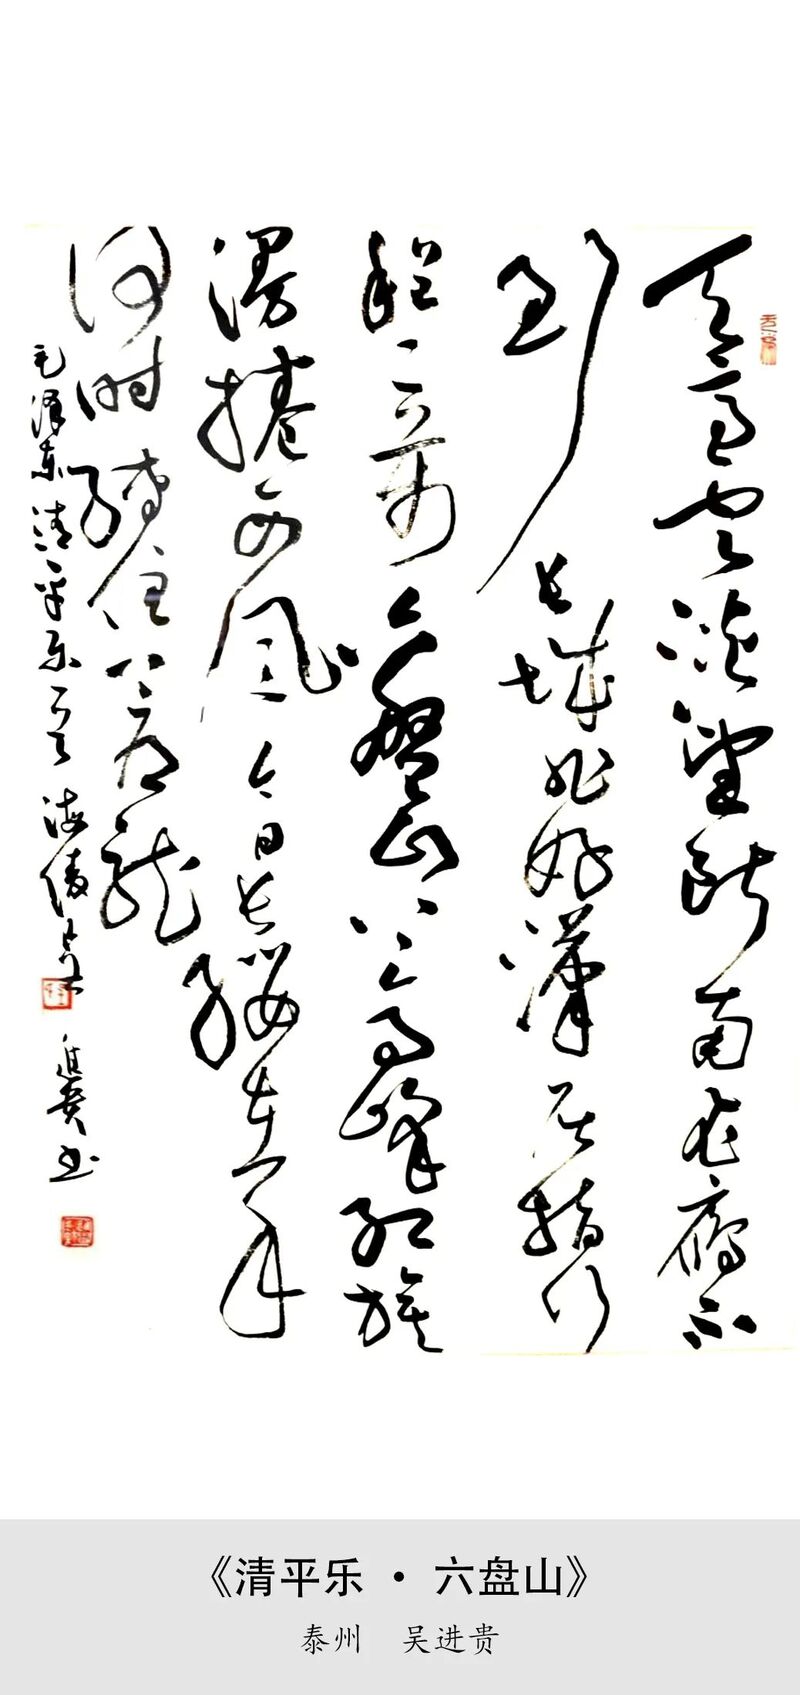 天高云淡望断南飞雁不
到长城非好漢屈指行
程二万六盘山上高峰红旗
漫捲西风今日长缨在手
何时缚住苍龙
毛泽东清平乐一首 海陵吴进贵书
《清平乐·六盘山》
泰州 吴进贵